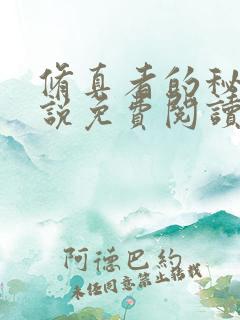 脩真者的秘
說免費閱讀
阿德巴約
未经同意禁止转载